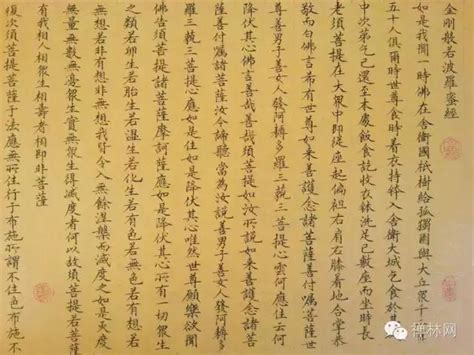 金剛般若波羅蜜經
如是我聞一時佛在舍衛國祇樹給孤獨園與大丘眾千二百
五十人俱爾時世尊食時著衣持鉢入舍衛大城乞食於其城
中次第乞已還至本處飯食訖收衣鉢洗足已敷座而坐時長
老須菩提在大眾中即從座起偏袒右肩右膝著地合掌恭
敬而白佛言希有世尊如來善護念諸菩薩善付囑諸菩薩世
尊善男子善女人發阿耨多羅三藐三菩提心云何應住云何
降伏其心佛言善哉善哉須菩提如汝所說如來善護念諸菩
薩善付囑諸菩薩汝今諦聽當為汝說善男子善女人發阿耨多
羅三藐三菩提心應如是住如是降伏其心唯然世尊願樂欲聞
佛告須菩提諸菩薩摩訶薩應如是降伏其心所有一切眾生
之類若卵生若胎生若濕生若化生若有色若無色若有想若
無想若非有想非無想我皆令入無餘涅槃而滅度之如是滅度
無量無數無邊眾生實無眾生得滅度者何以故須菩提菩薩
有我相人相眾生相壽者相即非菩薩
復次須菩提菩薩於法應無所住行於布施所謂不住色布施不
禅林网